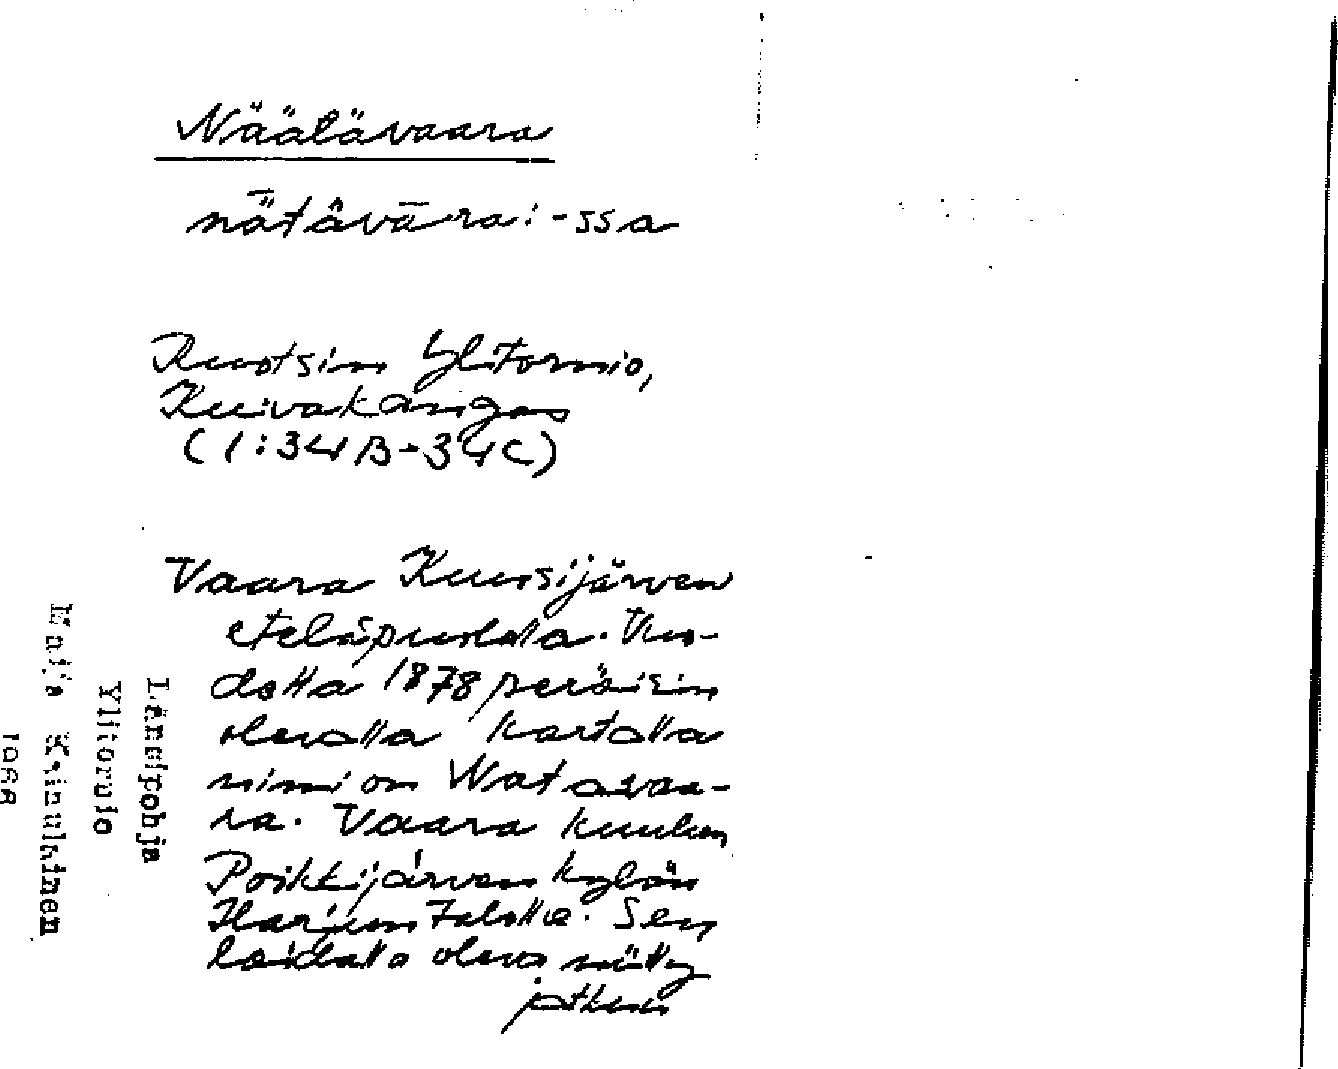 Näätävaara
nǟtävāra: -ssa
Ruotsin Ylitornio,
Kuivakangas
(1:34B-34C)
Vaara Kuusijärven
eteläpuolella. Vuo-
delta 1878 peräisin
olevalla kartalla
nimi on Watavaa-
ra. Vaara kuuluu
Poikkijärven kylän
Harjun talolle. Sen
laidalla oleva niitty
jatkuu
Länsipohja
Ylitornio
Maija Kainulainen
1968